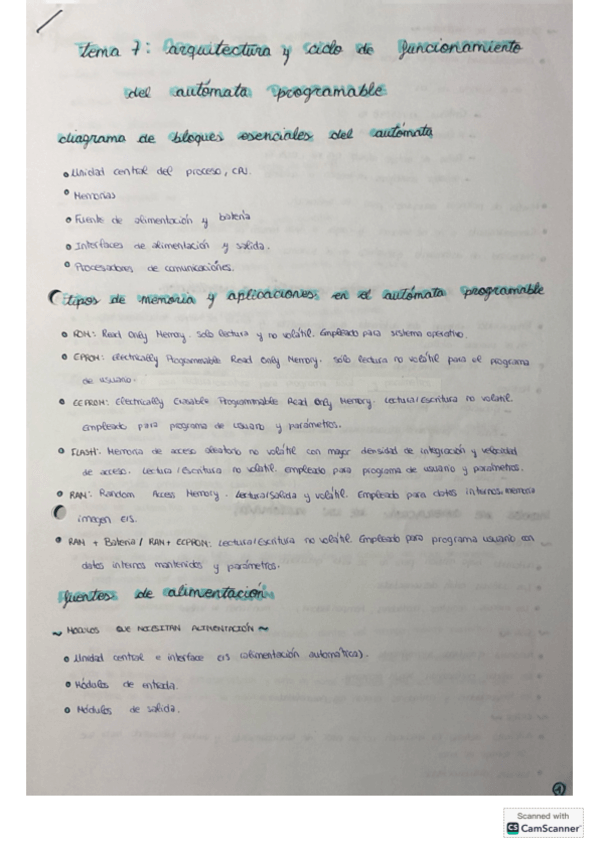 tema 7: arquitectura y ciclo de funcionamiento
del autómata programable
diagrama de bloques esenciales del autómata
• Unidad central del proceso, CPU.
• Memorias
• Fuente de alimentación y batería
• Interfaces de alimentación y salida.
• Procesadores de comunicaciones.
tipos de memoria y aplicaciones en el autómata programable
• ROM: Read Only Memory. Solo lectura y no volátil. Empleado para sistema operativo.
• EPROM: Electrically Programmable Read Only Memory. Sólo lectura no volátil para el programa
de usuario.
• EEPROM: Electrically Erasable Programmable Read Only Memory. Lectura/escritura no volátil.
Empleado para programa de usuario y parámetros.
• FLASH: Memoria de acceso aleatorio no volátil con mayor densidad de integración y velocidad
de acceso. Lectura/escritura no volátil. empleado para programa de usuario y parámetros.
• RAM: Random Access Memory. Lectura/salida y volátil. Empleado para datos internos. memoria
imagen E/S.
• RAM + Batería / RAM + EEPROM: Lectura/Escritura no volátil. Empleado para programa usuario con
datos internos mantenidos y parámetros.
fuentes de alimentación
~ MÓDULOS QUE NECESITAN ALIMENTACIÓN ~
• Unidad central e interface E/S (alimentación automática).
• Módulos de entrada.
• Módulos de salida.
1
Scanned with
CS CamScanner